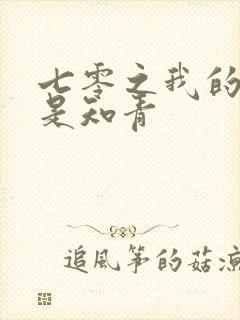 七零之我的
是知青
追風筝的菇凉